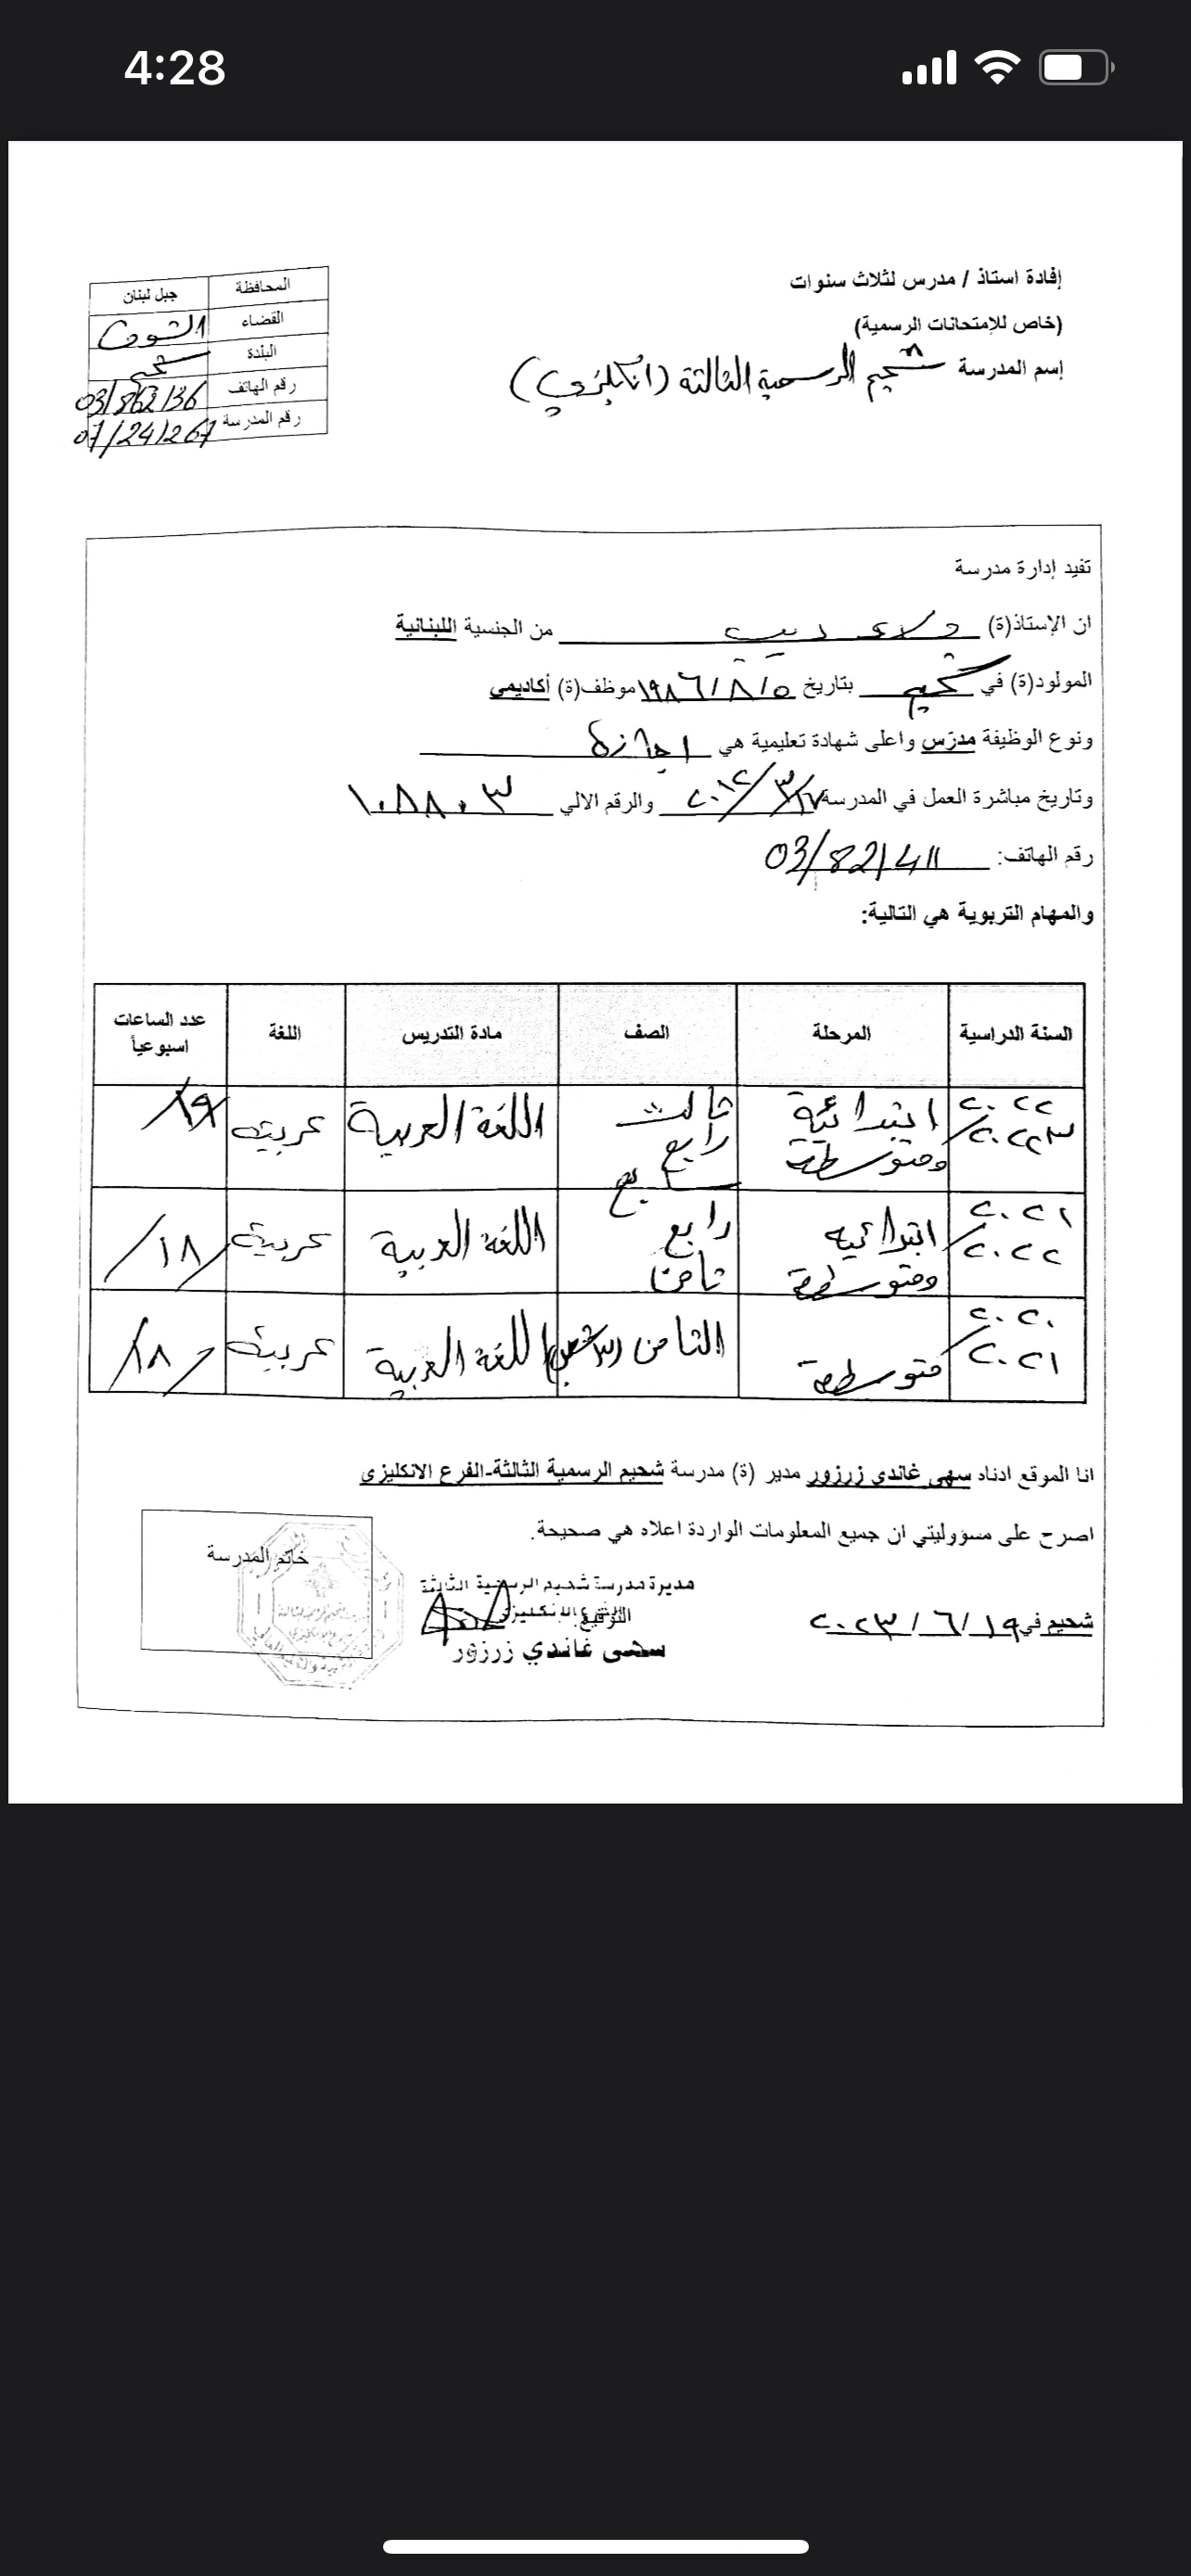 4:28
إفادة استاذ / مدرس لثلاث سنوات
(خاص للإمتحانات الرسمية)
إسم المدرسة شحيم الرسمية الثالثة (انكليزي)
المحافظة جبل لبنان
القضاء الشوف
البلدة شحيم
رقم الهاتف 03/862136
رقم المدرسة 07/241267
تفيد إدارة مدرسة
ان الإستاذ(ة) ديب من الجنسية اللبنانية
المولود(ة) في شحيم بتاريخ ١٩٨٦/٨/٥ موظف(ة) أكاديمي
ونوع الوظيفة مدرّس واعلى شهادة تعليمية هي اجازة
وتاريخ مباشرة العمل في المدرسة والرقم الالي ١٠٨٨٠٣
رقم الهاتف: 03/821411
والمهام التربوية هي التالية:
السنة الدراسية المرحلة الصف مادة التدريس اللغة عدد الساعات اسبوعياً
٢٠٢٢/٢٠٢٣ ابتدائية ومتوسطة ثالث رابع سابع اللغة العربية عربية /١٩/
٢٠٢١/٢٠٢٢ ابتدائية ومتوسطة رابع ثامن اللغة العربية عربية /١٨/
٢٠٢٠/٢٠٢١ متوسطة الثامن (٣ شعب) اللغة العربية عربية /١٨/
انا الموقع ادناه سهى غاندي زرزور مدير (ة) مدرسة شحيم الرسمية الثالثة-الفرع الانكليزي
اصرح على مسؤوليتي ان جميع المعلومات الواردة اعلاه هي صحيحة.
شحيم في ٢٠٢٣/٦/١٩
مديرة مدرسة شحيم الرسمية الثالثة
الفرع الإنكليزي
التوقيع
سهى غاندي زرزور
خاتم المدرسة